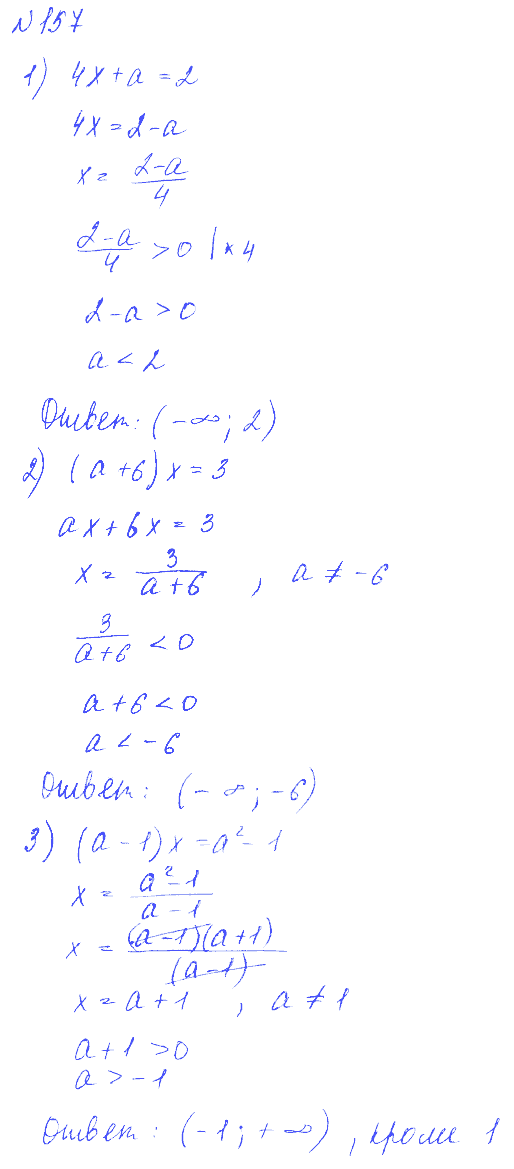 №157
1) 4x + a = 2
4x = 2 - a
x = (2-a)/4
(2-a)/4 > 0 | × 4
2 - a > 0
a < 2
Ответ: (-∞; 2)
2) (a + 6) x = 3
ax + 6x = 3
x = 3/(a+6) , a ≠ -6
3/(a+6) < 0
a + 6 < 0
a < -6
Ответ: (-∞; -6)
3) (a - 1) x = a² - 1
x = (a²-1)/(a-1)
x = (a-1)(a+1)/(a-1)
x = a + 1 , a ≠ 1
a + 1 > 0
a > -1
Ответ: (-1; +∞), кроме 1